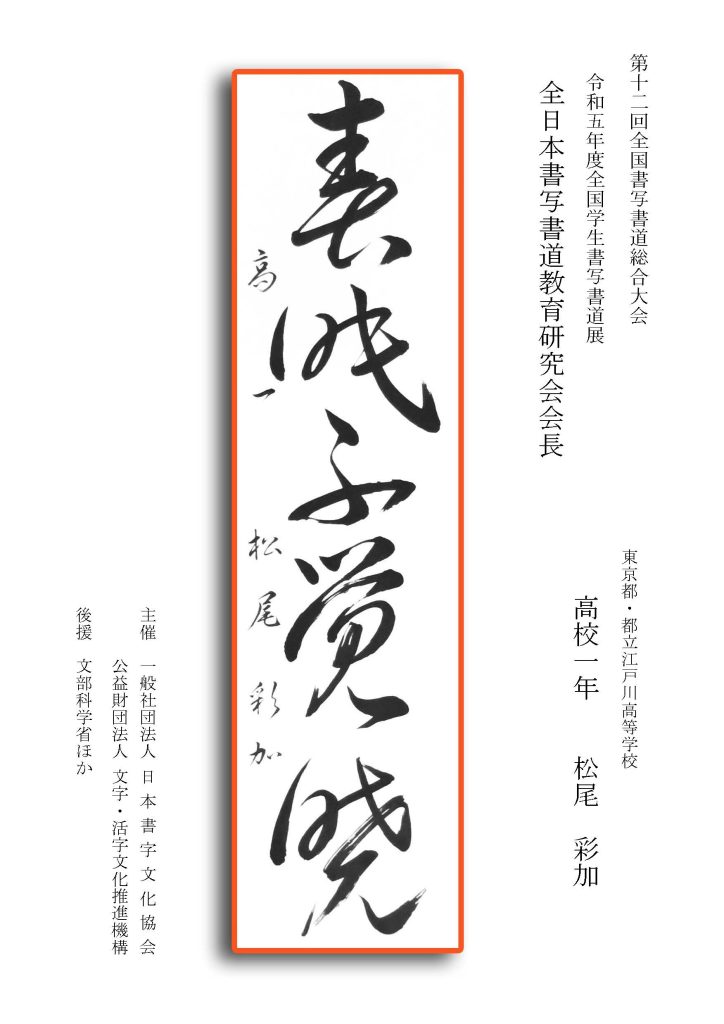 第十二回全国書写書道総合大会
令和五年度全国学生書写書道展
全日本書写書道教育研究会会長
東京都・都立江戸川高等学校
高校一年　松尾　彩加
春眠不覚暁
高一　松尾彩加
主催　一般社団法人　日本書字文化協会
公益財団法人　文字・活字文化推進機構
後援　文部科学省ほか